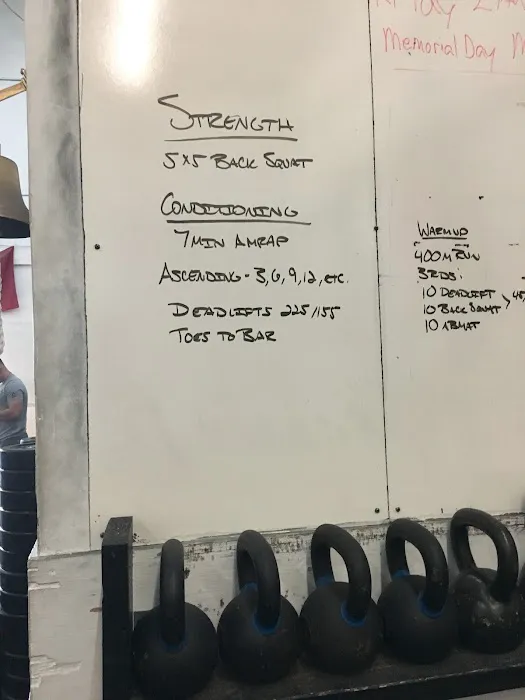 STRENGTH
5x5 BACK SQUAT
CONDITIONING
7 MIN AMRAP
ASCENDING - 3, 6, 9, 12, ETC.
DEADLIFTS 225/155
TOES TO BAR
Memorial Day
WARMUP
400M RUN
3 RDS:
10 DEADLIFT
10 BACK SQUAT
10 ABMAT